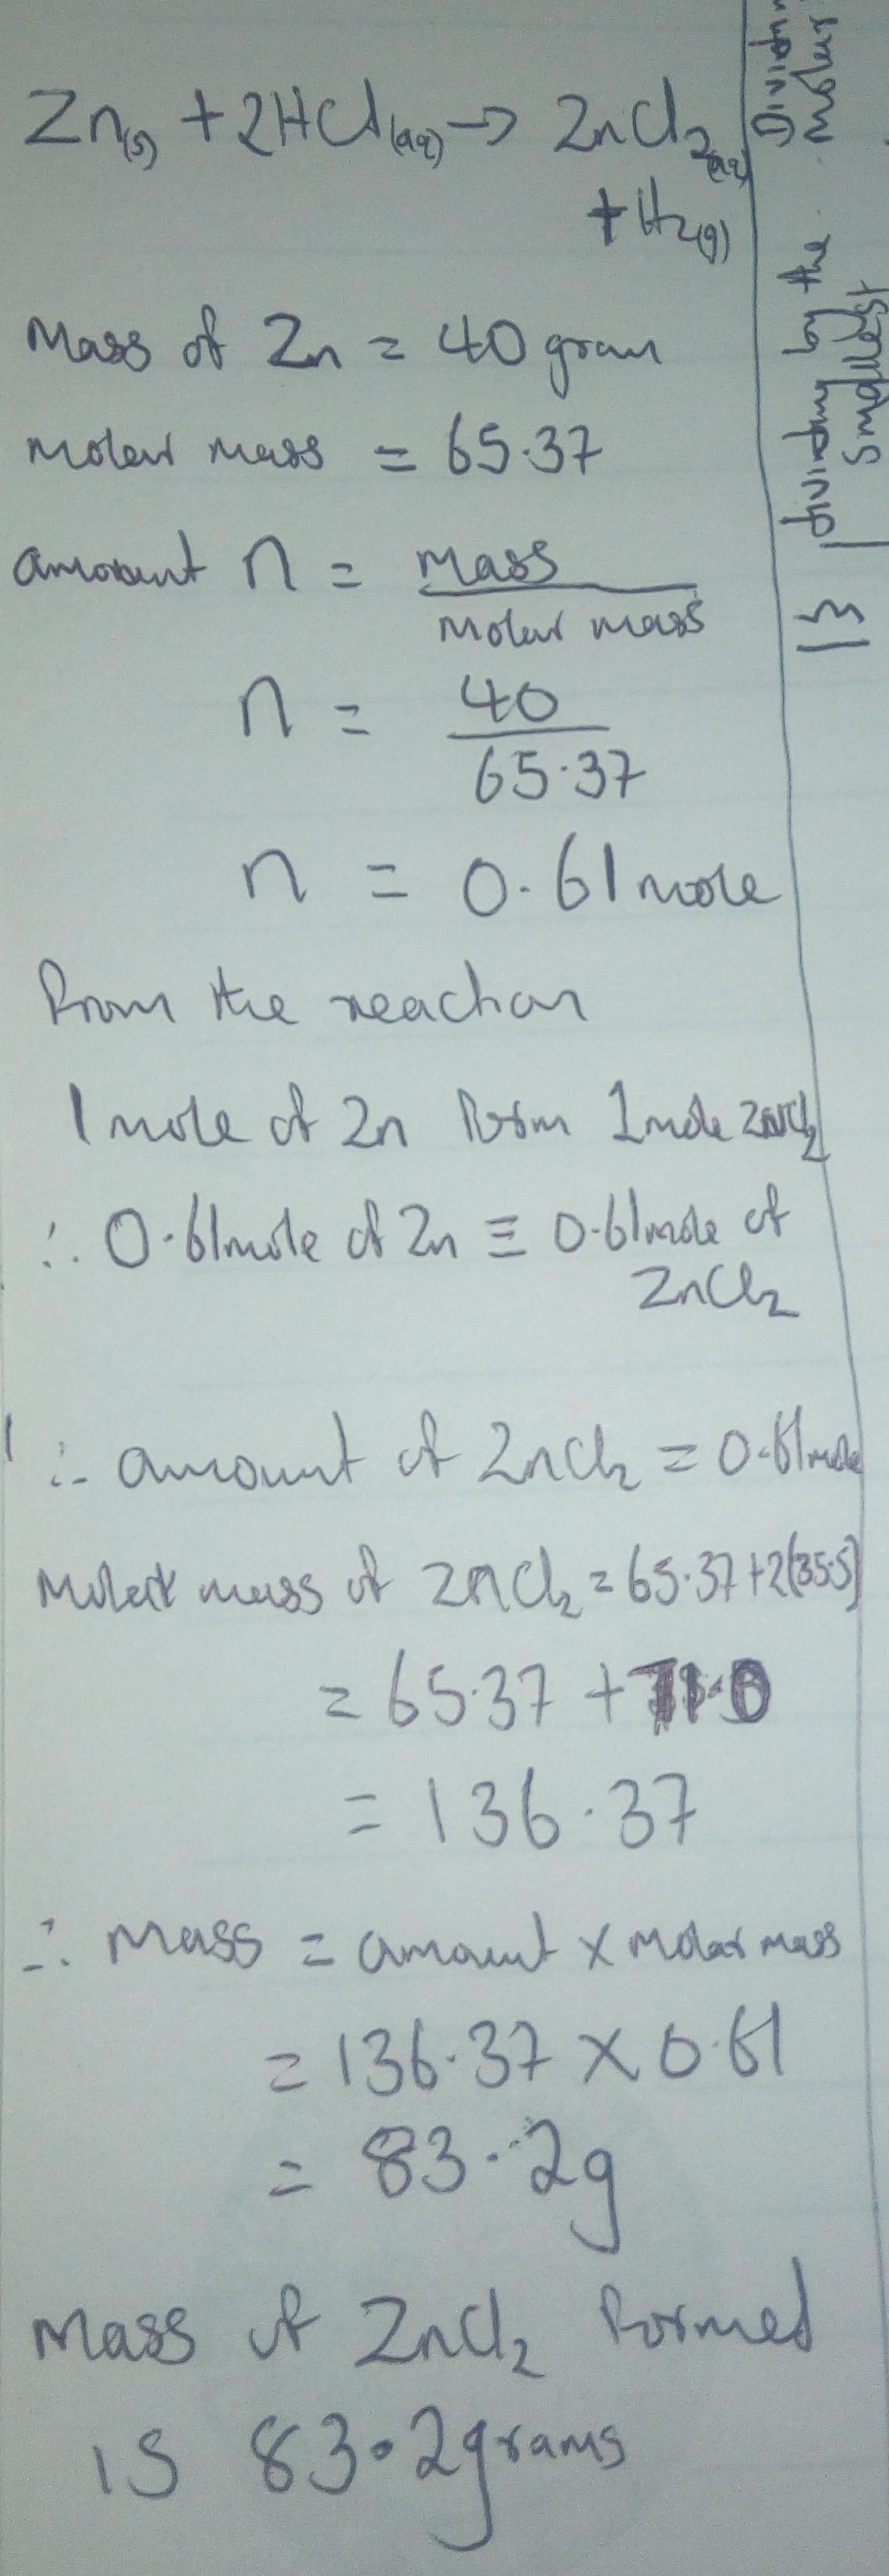 Zn(s) + 2HCl(aq) → ZnCl2(aq)
+ H2(g)
Mass of Zn = 40 gram
molar mass = 65.37
amount n = mass
molar mass
n = 40
65.37
n = 0.61 mole
From the reaction
1 mole of Zn form 1 mole ZnCl2
∴ 0.61 mole of Zn ≡ 0.61 mole of
ZnCl2
∴ amount of ZnCl2 = 0.61 mole
Molar mass of ZnCl2 = 65.37 + 2(35.5)
= 65.37 + 71.0
= 136.37
∴ Mass = amount × molar mass
= 136.37 × 0.61
= 83.2g
Mass of ZnCl2 formed
is 83.2 grams
dividing by the
smallest